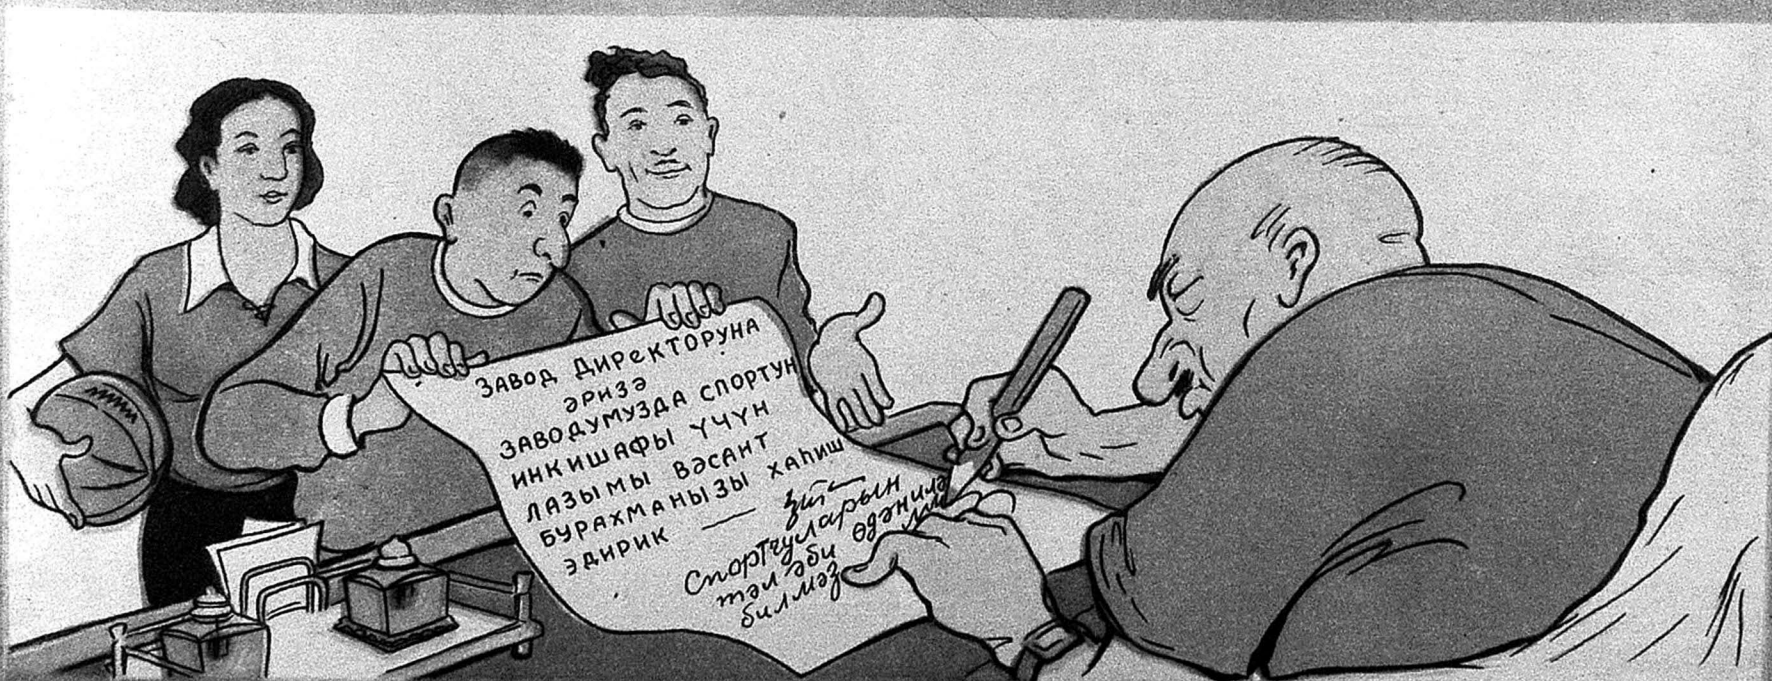 ЗАВОД ДИРЕКТОРУНА
ӘРИЗӘ
ЗАВОДУМУЗДА СПОРТУН
ИНКИШАФЫ ҮЧҮН
ЛАЗЫМЫ ВӘСАИТ
БУРАХМАНЫЗЫ ХАҺИШ
ЭДИРИК —
Спортчуларын
тәләби өдәнилә
билмәз